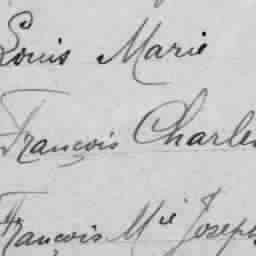 Louis Marie
François Charles
François Mie Joseph